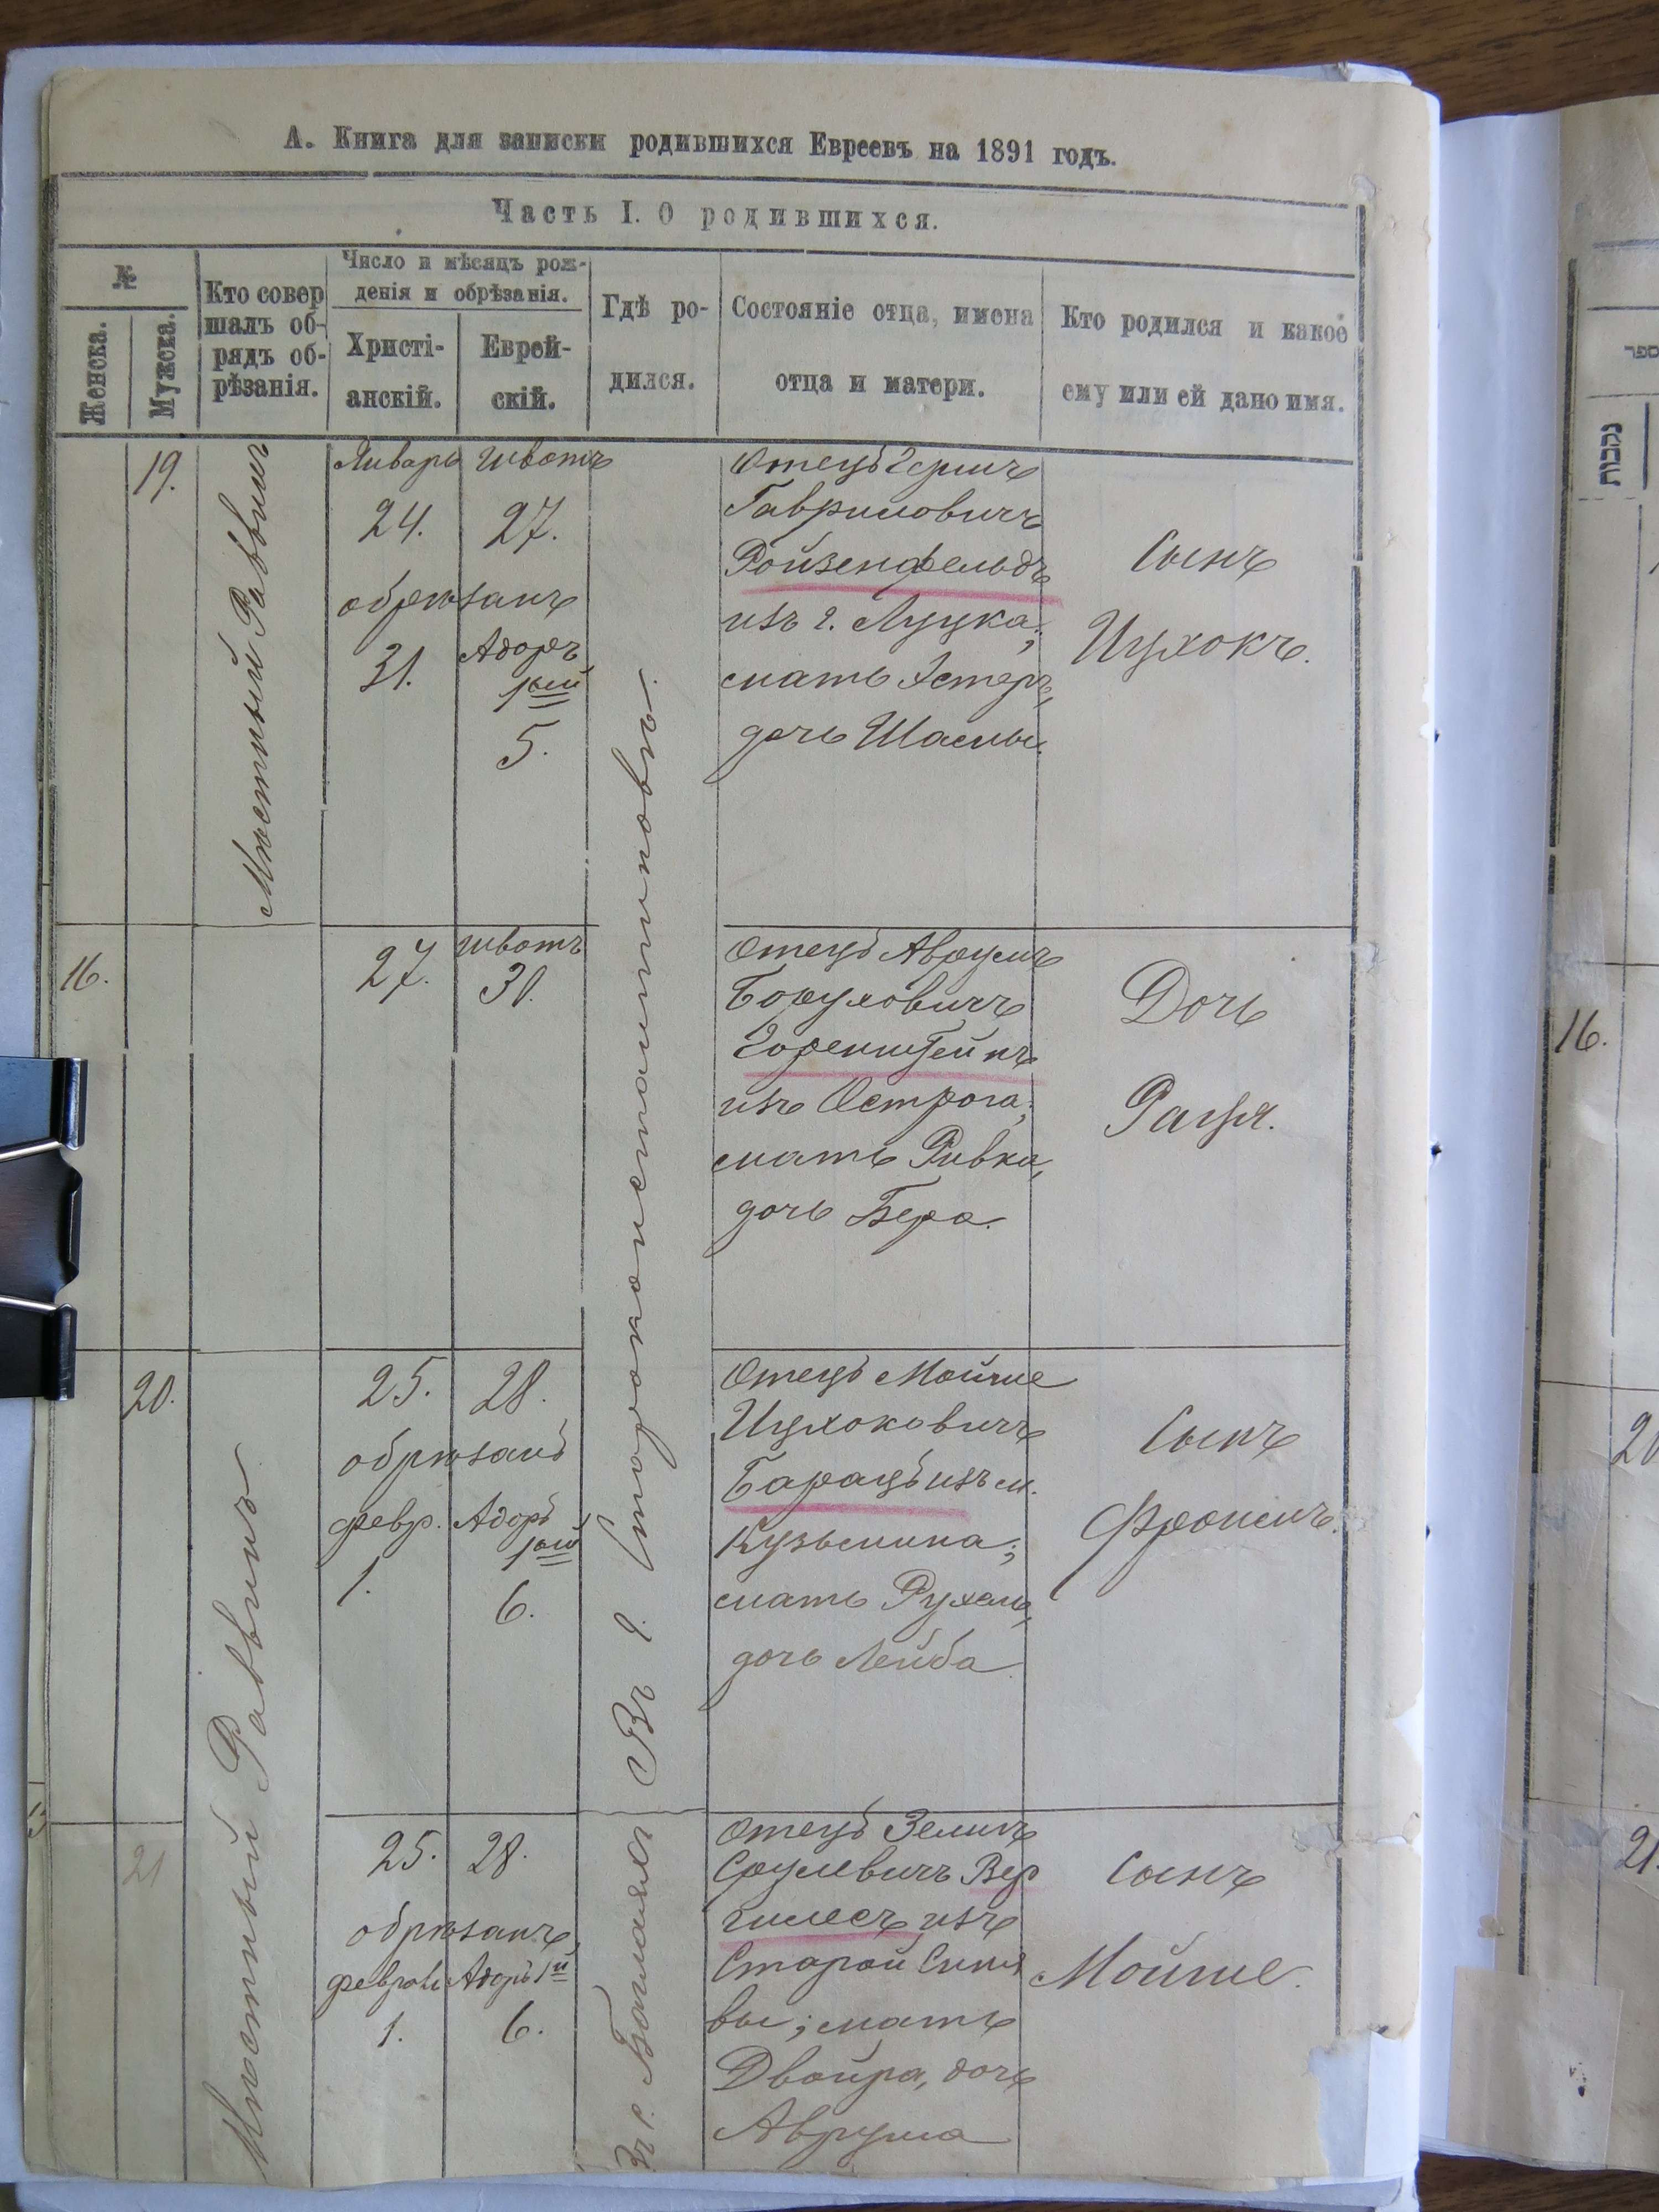 А. Книга для записки родившихся Евреевъ на 1891 годъ.
Часть I. О родившихся.
№
Женска.
Мужска.
Кто совер
шалъ об-
рядъ об-
рѣзанія.
Число и мѣсяцъ рож-
денія и обрѣзанія.
Христі-
анскій.
Еврей-
скій.
Гдѣ ро-
дился.
Состояніе отца, имена
отца и матери.
Кто родился и какое
ему или ей дано имя.
19.
Мѣстный Раввинъ
Январь
24.
обрѣзанъ
31.
Шватъ
27.
Адоръ
1ый
5.
Въ г. Староконстантиновѣ.
Отецъ Гершъ
Гавриловичъ
Ройзенфельдъ
изъ г. Луцка;
мать Эстеръ,
дочь Шаемы.
Сынъ
Ицхокъ.
16.
27.
Шватъ
30.
Отецъ Аврумъ
Боруховичъ
Горенштейнъ
изъ Острога;
мать Ривка,
дочь Бера.
Дочь
Рация.
20.
Мѣстный Раввинъ
25.
28.
обрѣзанъ
февр.
1.
Адоръ
1ый
6.
Отецъ Мойше
Ицхоковичъ
Барацъ изъ м.
Кузьмина;
мать Рухель,
дочь Лейба
Сынъ
Фроимъ.
21
25.
28.
обрѣзанъ
Адоръ 1й
1.
6.
Въ с.
Отецъ Зелигъ
Срулевичъ Вер
гилесъ изъ
Старой Синя
вы; мать
Двойра, дочь
Аврума
Сынъ
Мойше.
ספר
נקבות
16.
20
21.